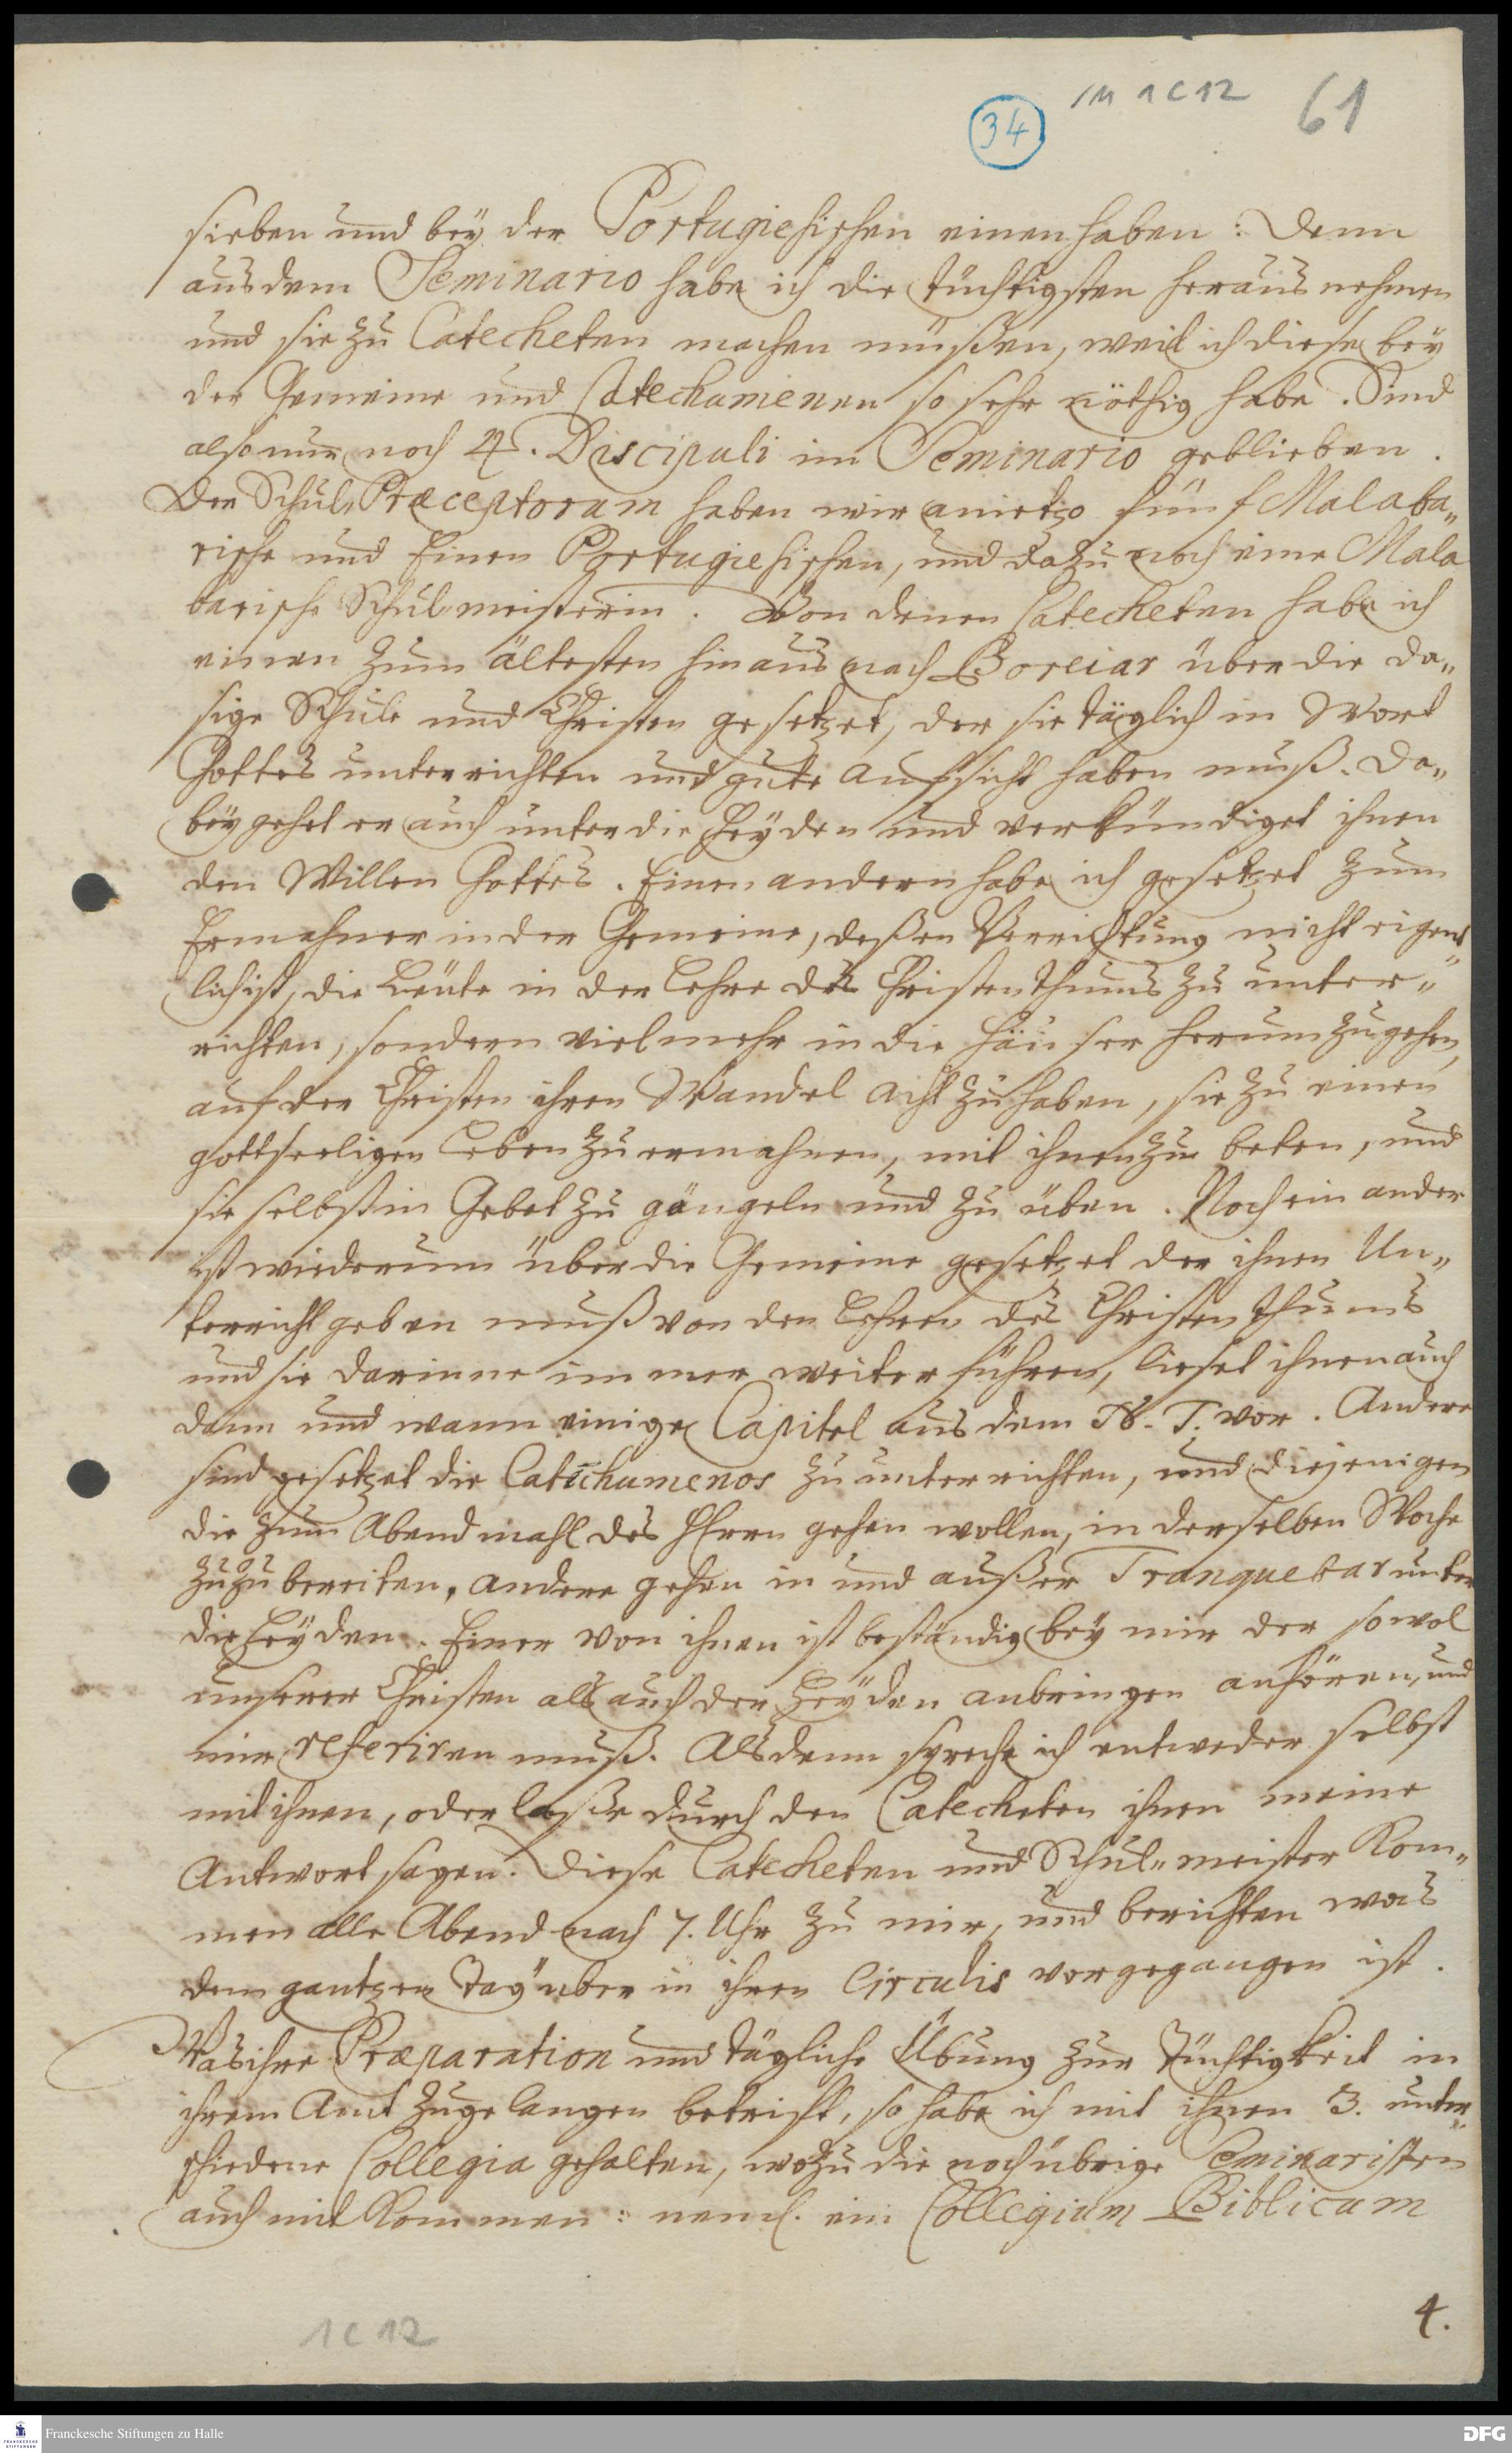 1M 1 C 12
34
61
sieben und bey der Portugiesischen einen haben: Denn
aus dem Seminario habe ich die tüchtigsten heraus nehmen
und sie zu Catecheten machen müßen, weil ich diese bey
der Gemeine und Catechumenen so sehr nöthig habe. Sind
also nur noch 4. Discipuli im Seminario geblieben.
Der Schul-Præceptorum haben wir anietzo fünf Malaba„
rische und Einen Portugiesischen, und dazu noch eine Mala
barische Schul-meisterin. Von denen Catecheten habe ich
einen zum ältesten hinaus nach Boreiar über die da„
sige Schule und Christen gesetzet, der sie täglich in Wort
Gottes unterrichten und gute aufsicht haben muß. Da„
bey gehet er auch unter die Heyden und verkündiget ihnen
den Willen Gottes. Einen andern habe ich gesetzet zum
Ermahner in der Gemeine, deßen Verrichtung nicht eigent„
lich ist, die Leute in der Lehre des Christenthums zu unter„
richten, sondern vielmehr in die Häuser herum zu gehen,
auf der Christen ihren Wandel acht zu haben, sie zu einen
gottseeligen Leben zu ermahnen, mit ihnen zu beten, und
sie selbst in Gebet zu gängeln und zu üben. Noch ein ander
ist wiederum über die Gemeine gesetzet der ihnen Un„
terricht geben muß von den Lehren des Christenthums
und sie darinne immer weiter führen, lieset ihnen auch
dann und wann einige Capitel aus dem N. T. vor. Andere
sind gesetzet die Catechumenos zu unterrichten, und diejenigen
die zum Abendmahl des HErrn gehen wollen, in derselben Woche
zuzubereiten, andere gehen in und außer Tranquebar unter
die Heyden. Einer von ihnen ist beständig bey mir der sowol
unserer Christen als auch der Heyden anbringen anhören, und
mir referiren muß. Alsdenn spreche ich entweder selbst
mit ihnen, oder laße durch den Catecheten ihnen meine
Antwort sagen. Diese Catecheten und Schul-meister kom„
men alle Abend nach 7. Uhr zu mir, und berichten was
den gantzen Tag über in ihren Circulis vorgegangen ist.
Was ihre Præparation und tägliche Übung zur Tüchtigkeit in
ihrem Amt zugelangen betrift, so habe ich mit ihnen 3. unter„
schiedene Collegia gehalten, wozu die noch übrige Seminaristen
auch mit kommen: neml. ein Collegium Biblicum
4.
1 C 12
Franckesche Stiftungen zu Halle
DFG